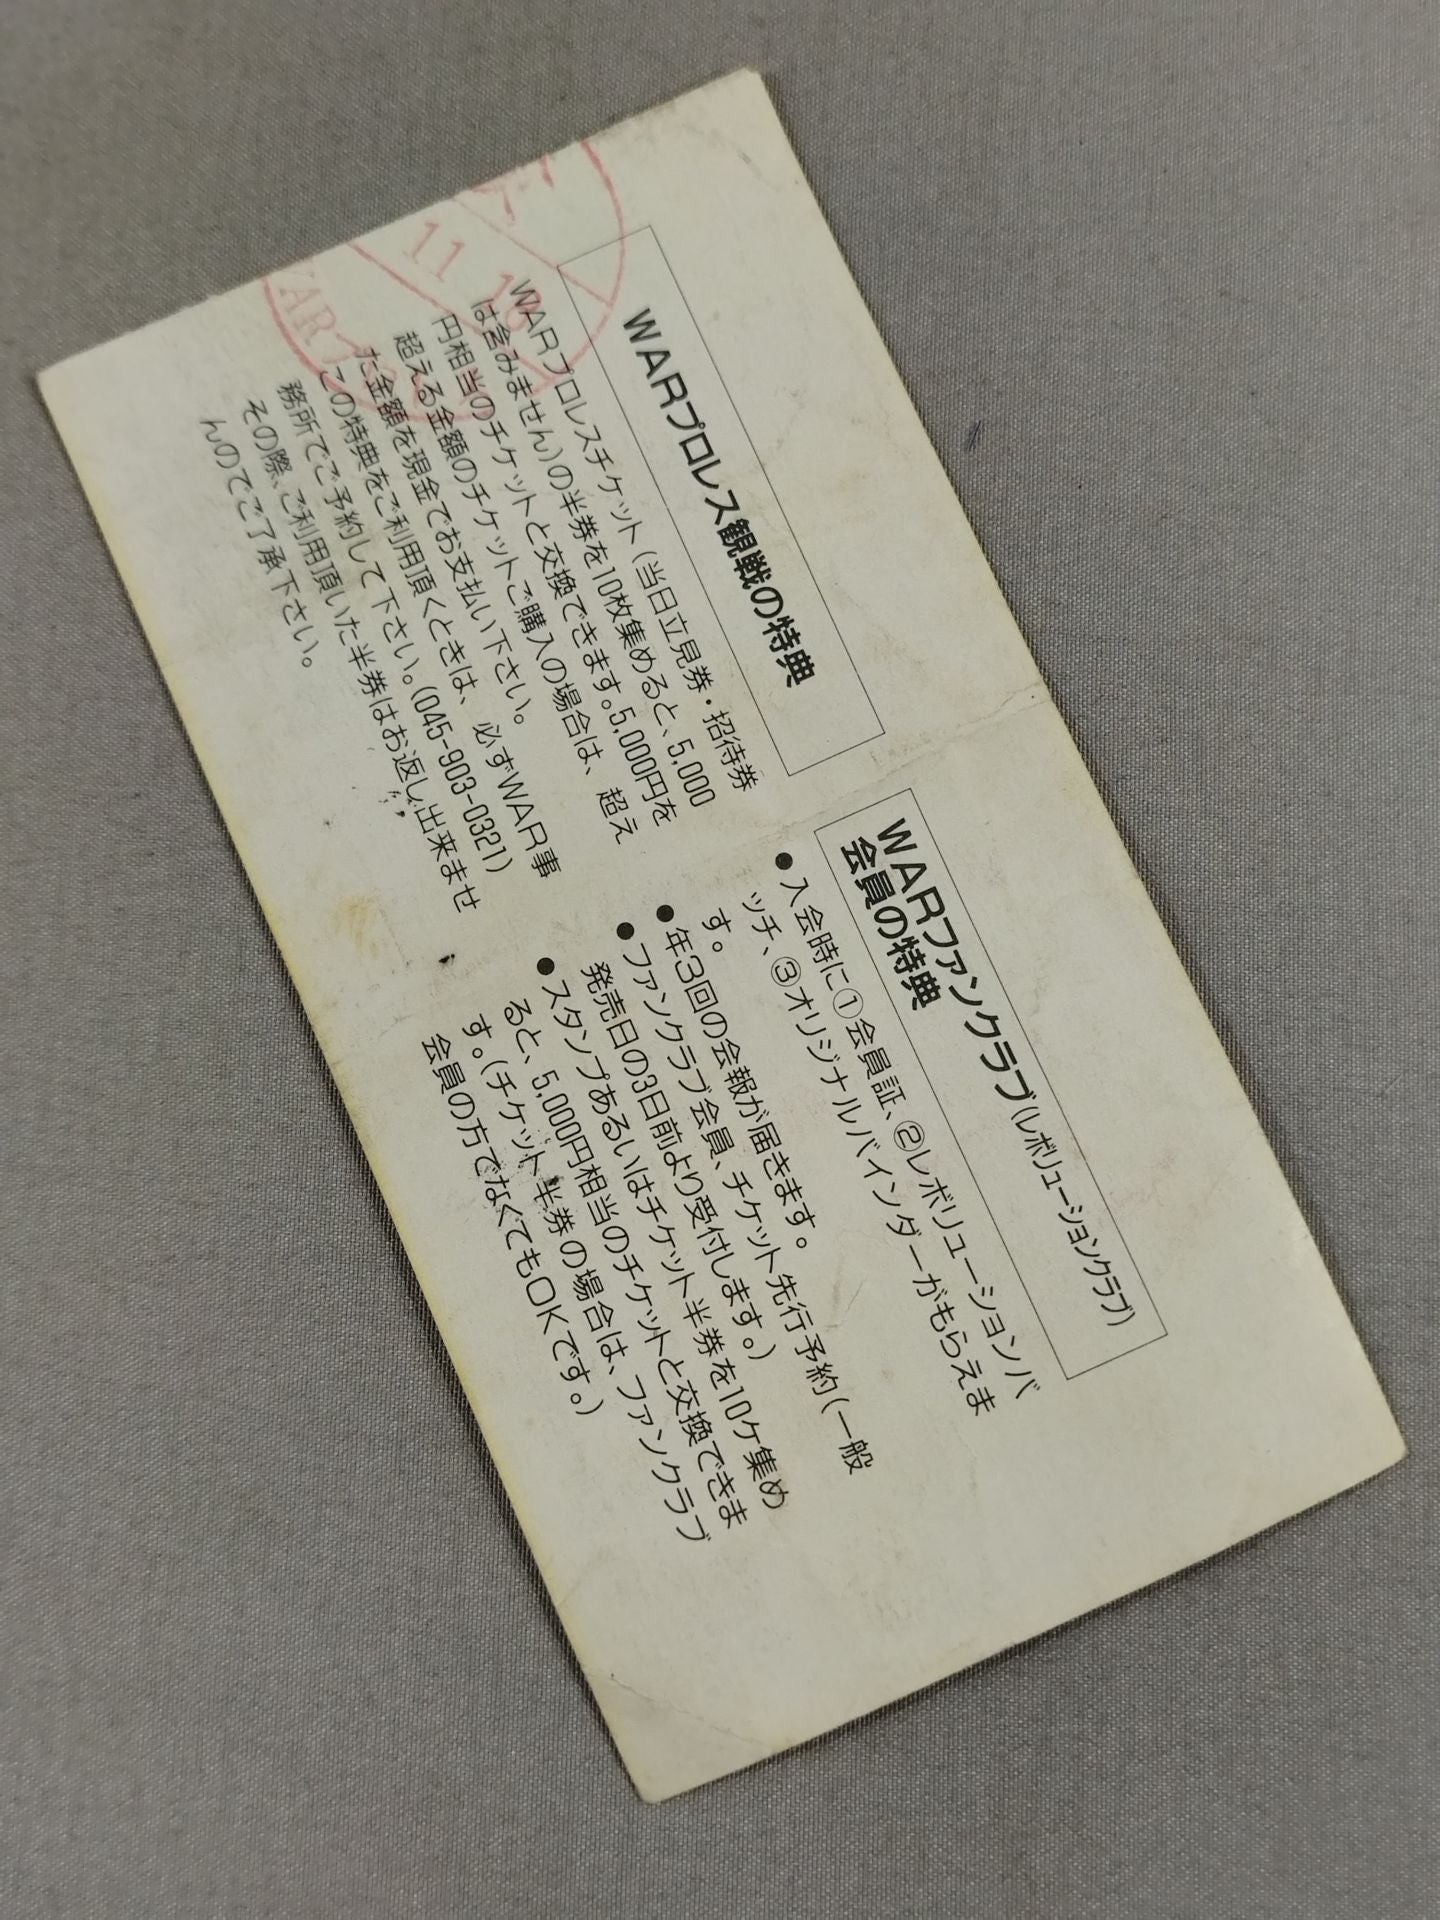 WARプロレス観戦の特典
WARプロレスチケット(当日立見券・招待券
は含みません)の半券を10枚集めると、5,000
円相当のチケットと交換できます。5,000円を
超える金額のチケットご購入の場合は、超え
た金額を現金でお支払い下さい。
この特典をご利用頂くときは、必ずWAR事
務所でご予約して下さい。(045-903-0321)
その際、ご利用頂いた半券はお返し出来ませ
んのでご了承下さい。
11 18
WAR
WARファンクラブ(レボリューションクラブ)
会員の特典
●入会時に①会員証、②レボリューションバ
ッチ、③オリジナルバインダーがもらえま
す。
●年3回の会報が届きます。
●ファンクラブ会員、チケット先行予約(一般
発売日の3日前より受付します。)
●スタンプあるいはチケット半券を10ケ集め
ると、5,000円相当のチケットと交換できま
す。(チケット半券の場合は、ファンクラブ
会員の方でなくてもOKです。)